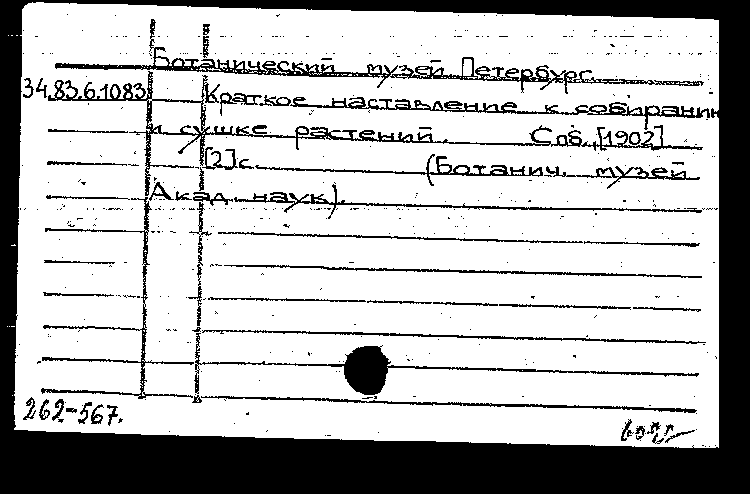 Ботанический музей Петербург.
34.83.6.1083 Краткое наставление к собирани
и сушке растений. Спб., [1902]
[2]с. (Ботанич. музей
Акад. наук).
262-567.